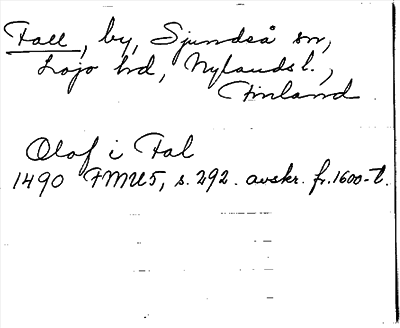 Fall, by, Sjundeå sn,
Lojo hd, Nylands l.,
Finland
Olof i Fal
1490 FMU5, s. 292. avskr. fr. 1600-t.